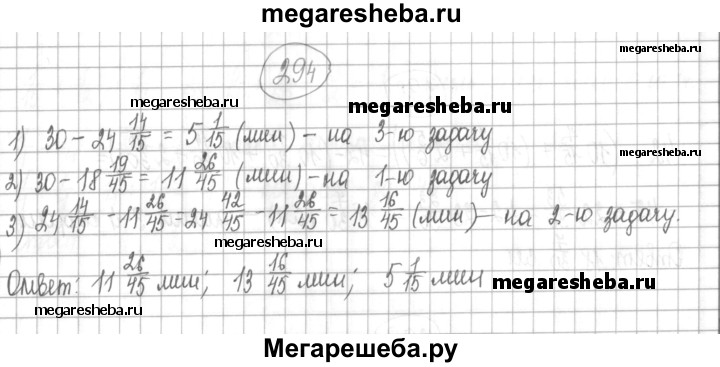 megaresheba.ru
megaresheba.ru
294
megaresheba.ru
megaresheba.ru
1) 30 - 24 14/15 = 5 1/15 (мин) - на 3-ю задачу
2) 30 - 18 19/45 = 11 26/45 (мин) - на 1-ю задачу
3) 24 14/15 - 11 26/45 = 24 42/45 - 11 26/45 = 13 16/45 (мин) - на 2-ю задачу.
megaresheba.ru
megaresheba.ru
megaresheba.ru
Ответ: 11 26/45 мин; 13 16/45 мин; 5 1/15 мин
megaresheba.ru
megaresheba.ru
Мегарешеба.ру